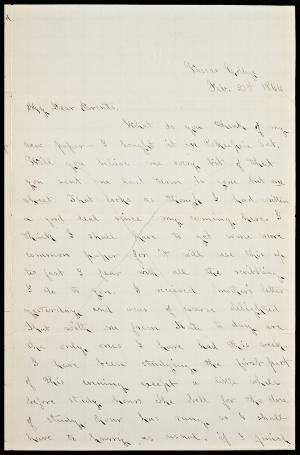 Vassar College
Feb. 21st 1866
My Dear Parents,
What do you think of my
new paper— I bought it in Po'keepsie Sat.
Will you believe me every bit of that
you sent me last term is gone but one
sheet. That looks as though I had written
a good deal since my coming here. I
think I shall have to get some more
common paper for it will use this up
to fast I fear with all the scribbling
I do to you. I received mother's letter
yesterday and was of course delighted.
That with one from to day are
the only ones I have had this week.
I have been studying the first part
of this evening except a little while
before study hours. The bell for the close
of study hour has rung so I shall
have to hurry as usual if I finish